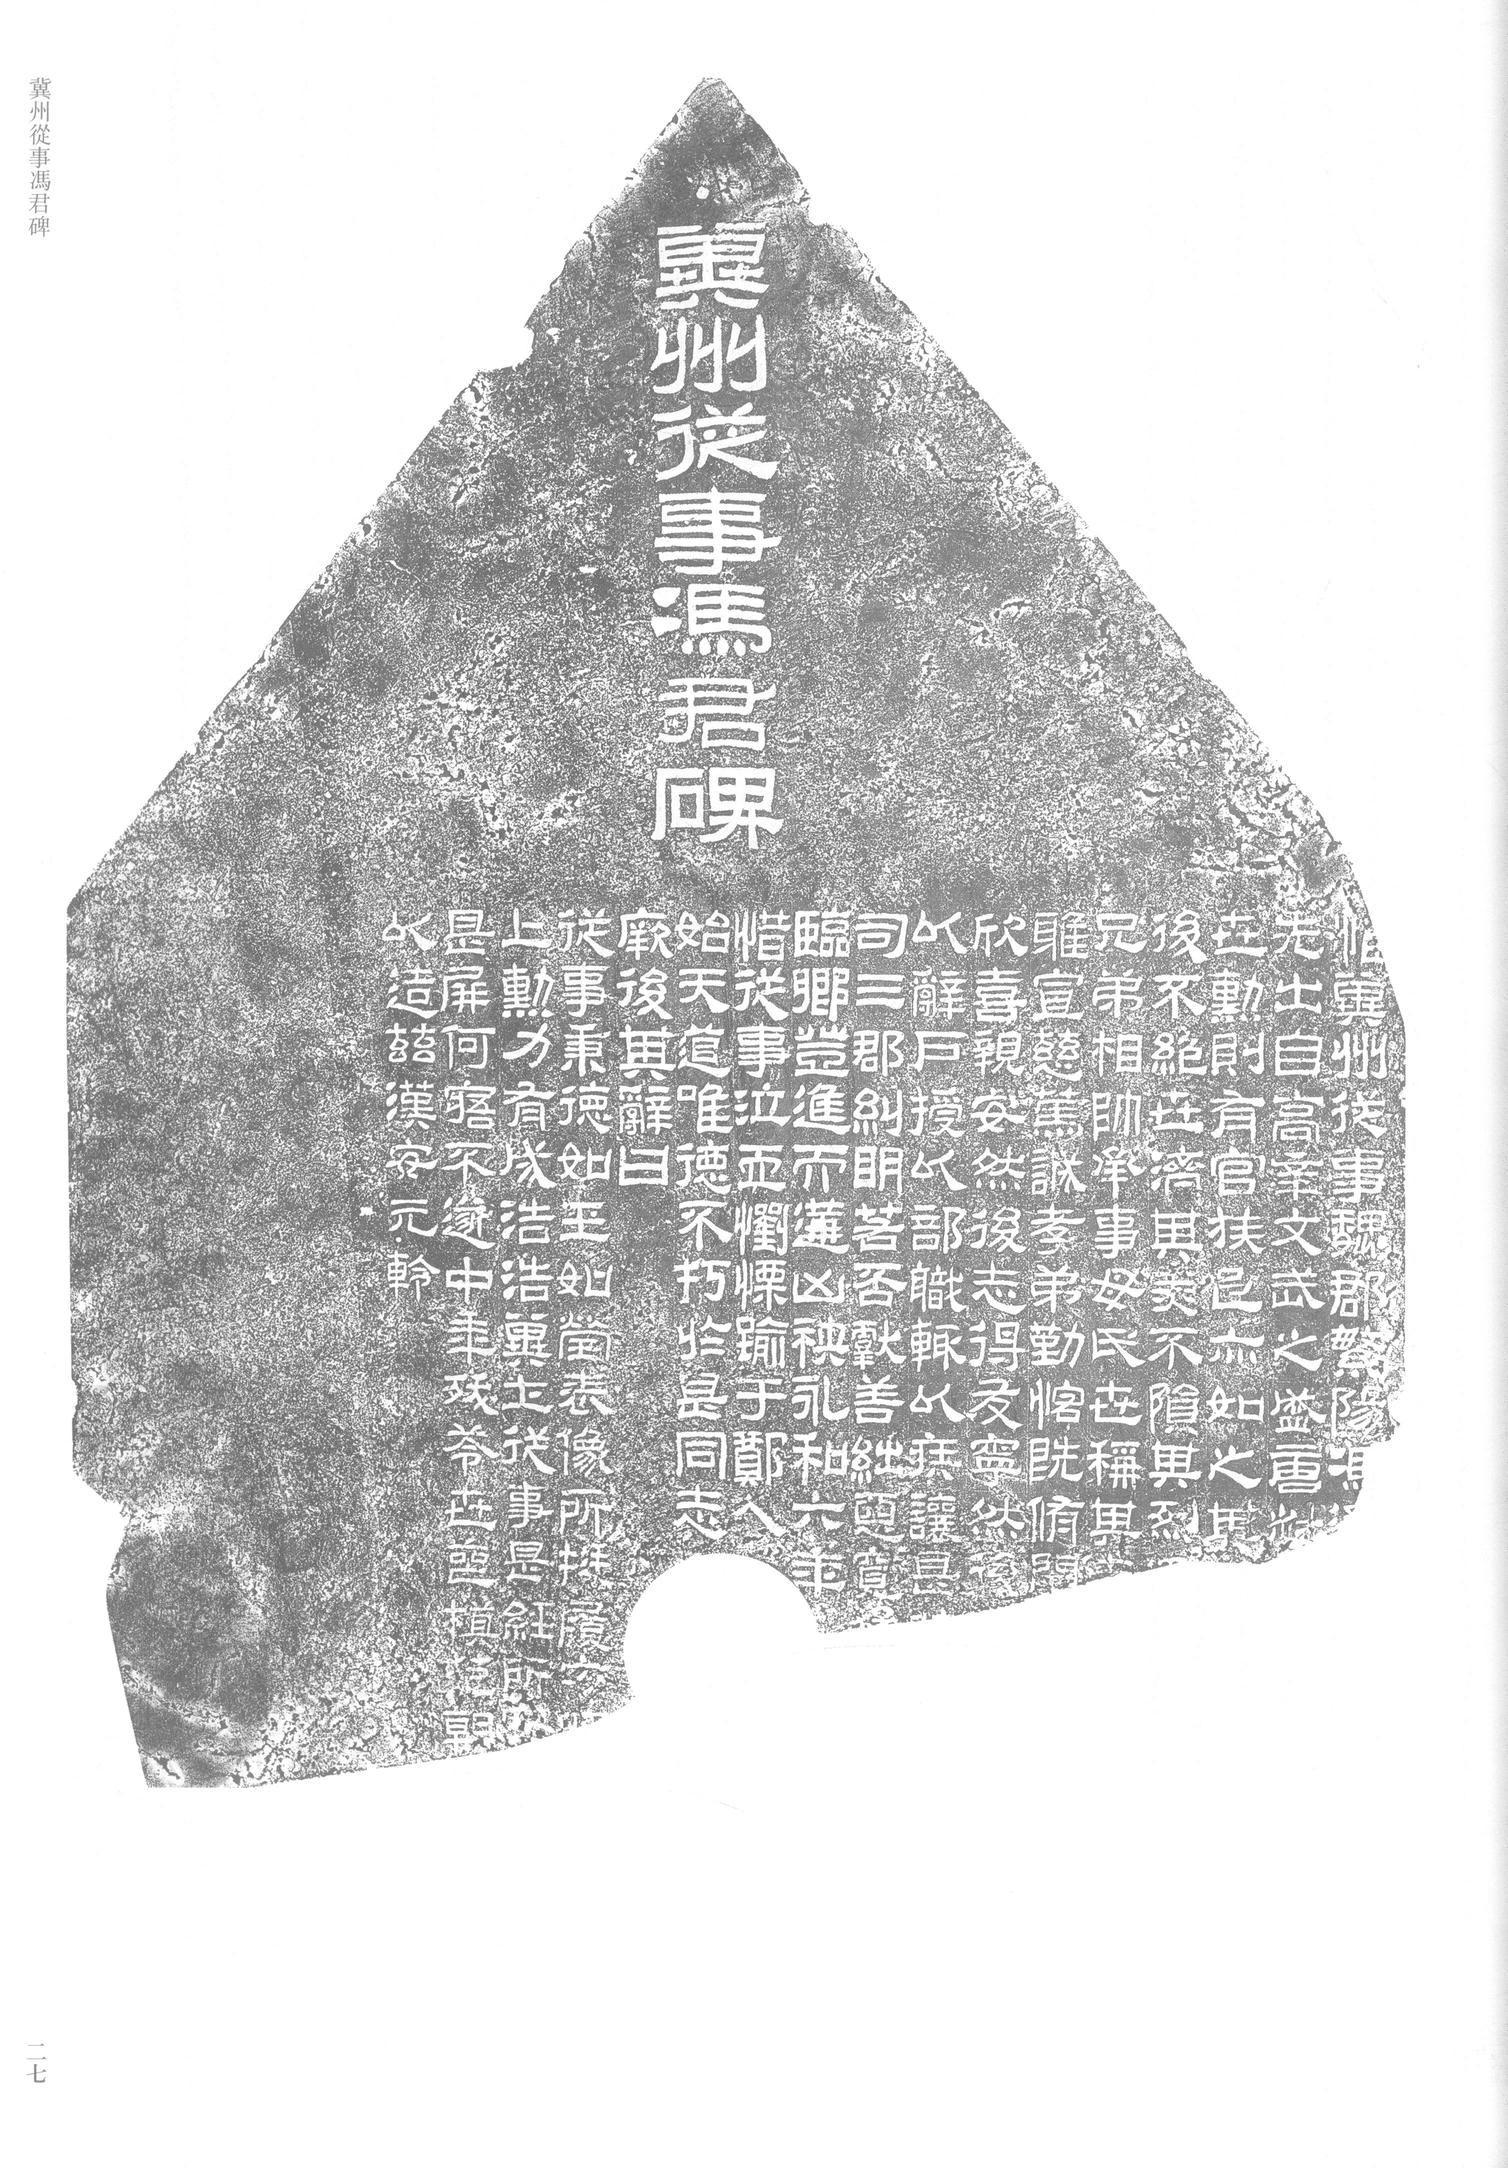 冀州從事馮君碑
冀州從事馮君碑
惟冀州從事魏郡繁陽馮
先出自高辛文武之盛
世勳則有官族邑亦如之
後不絕世濟其美不隕其烈
兄弟相帥承事母氏世稱
雎宣慈惠誠孝弟勤恪既脩
欣喜親安然後志得友寧然後
以辭戶授以部職輒以疾讓是
司三郡糾明否獻善絀惡
臨卿豈進而遘凶袂永和六年
惜從事泣血懰慄踰于鄭人
始天道唯德不朽於是同志
厥後其辭曰
從事秉德如玉如瑩表像所履
上勳力有成浩浩冀土從事是經所
是屏何寤不遂中年殁苓世邑
以造茲漢安元
二七